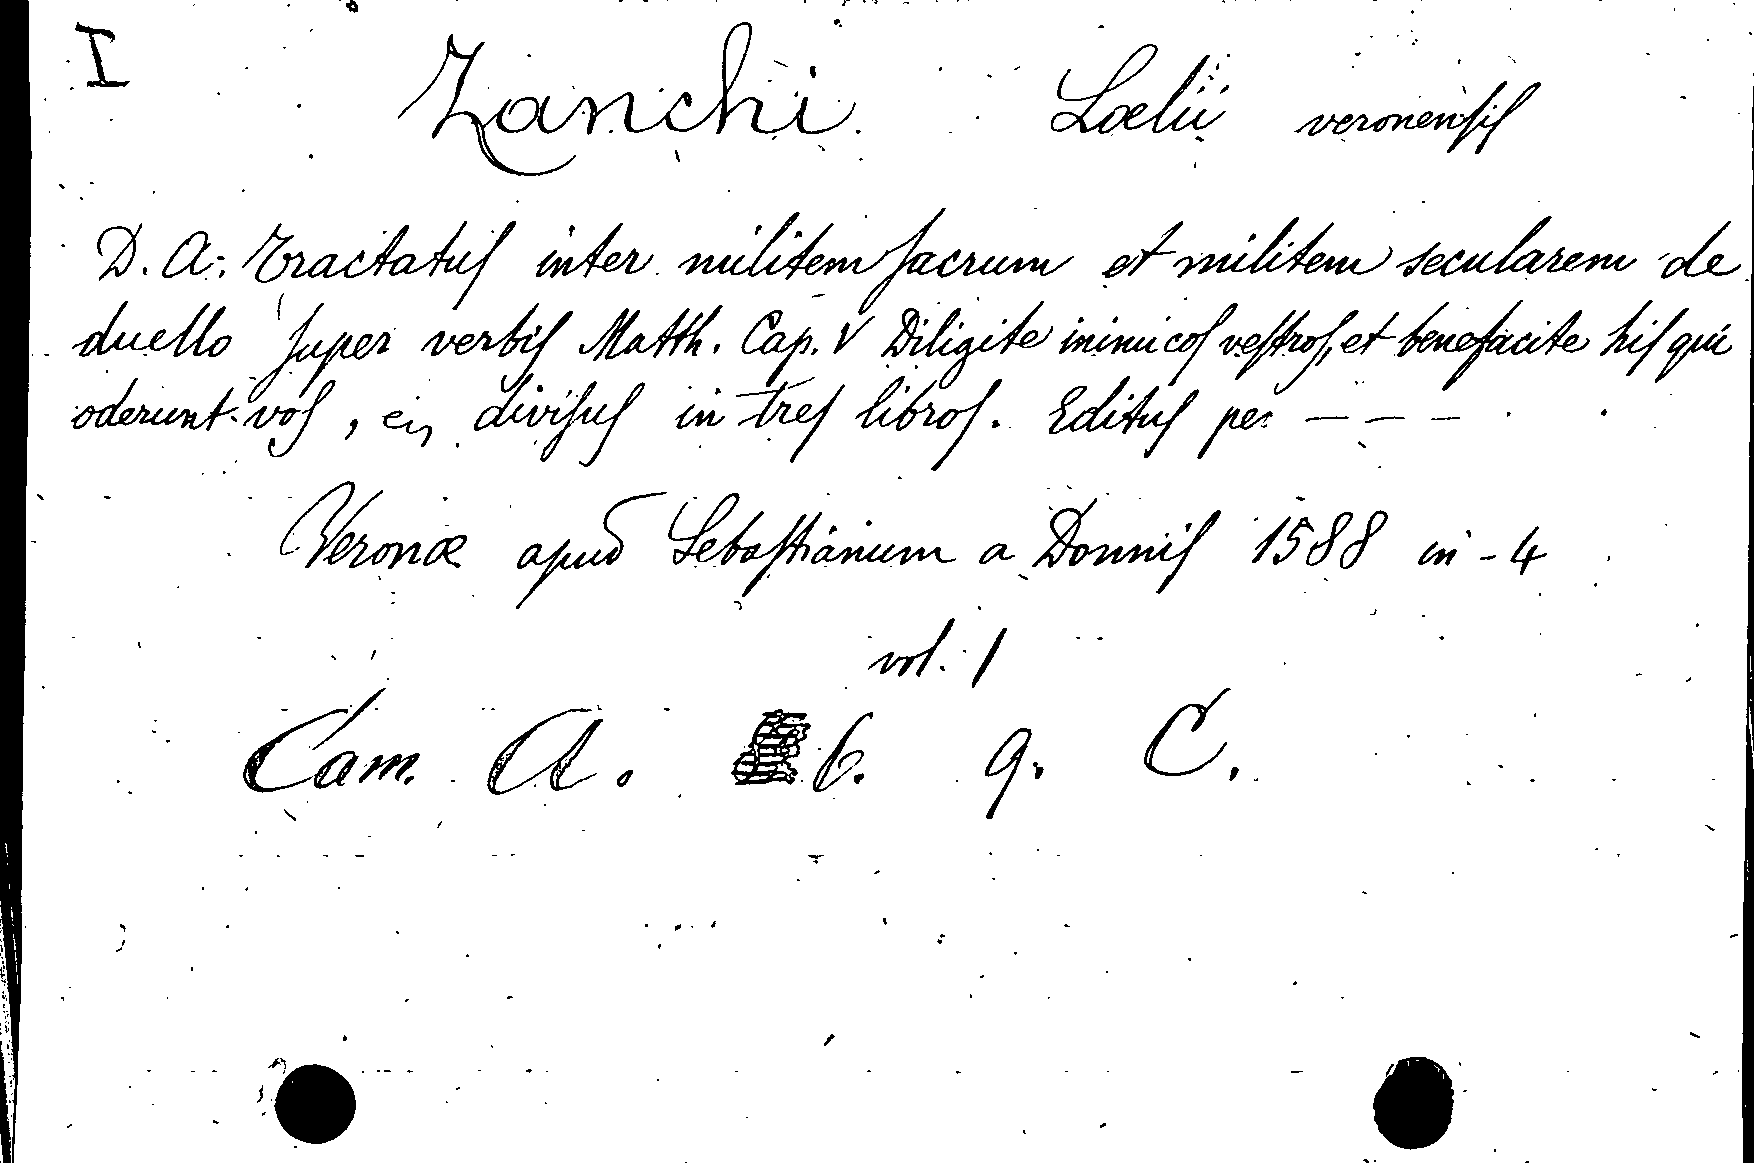 I
Zanchi Lælii veronensis
D. A. Tractatus inter militem sacrum et militem secularem de
duello super verbis Matth. Cap. V Diligite inimicos vestros, et benefacite his qui
oderunt vos, divisus in tres libros. Editus per - - -
Veronæ apud Sebastianum a Donnis 1588 in-4
vol. 1
Cam. A. 6. 9. C.